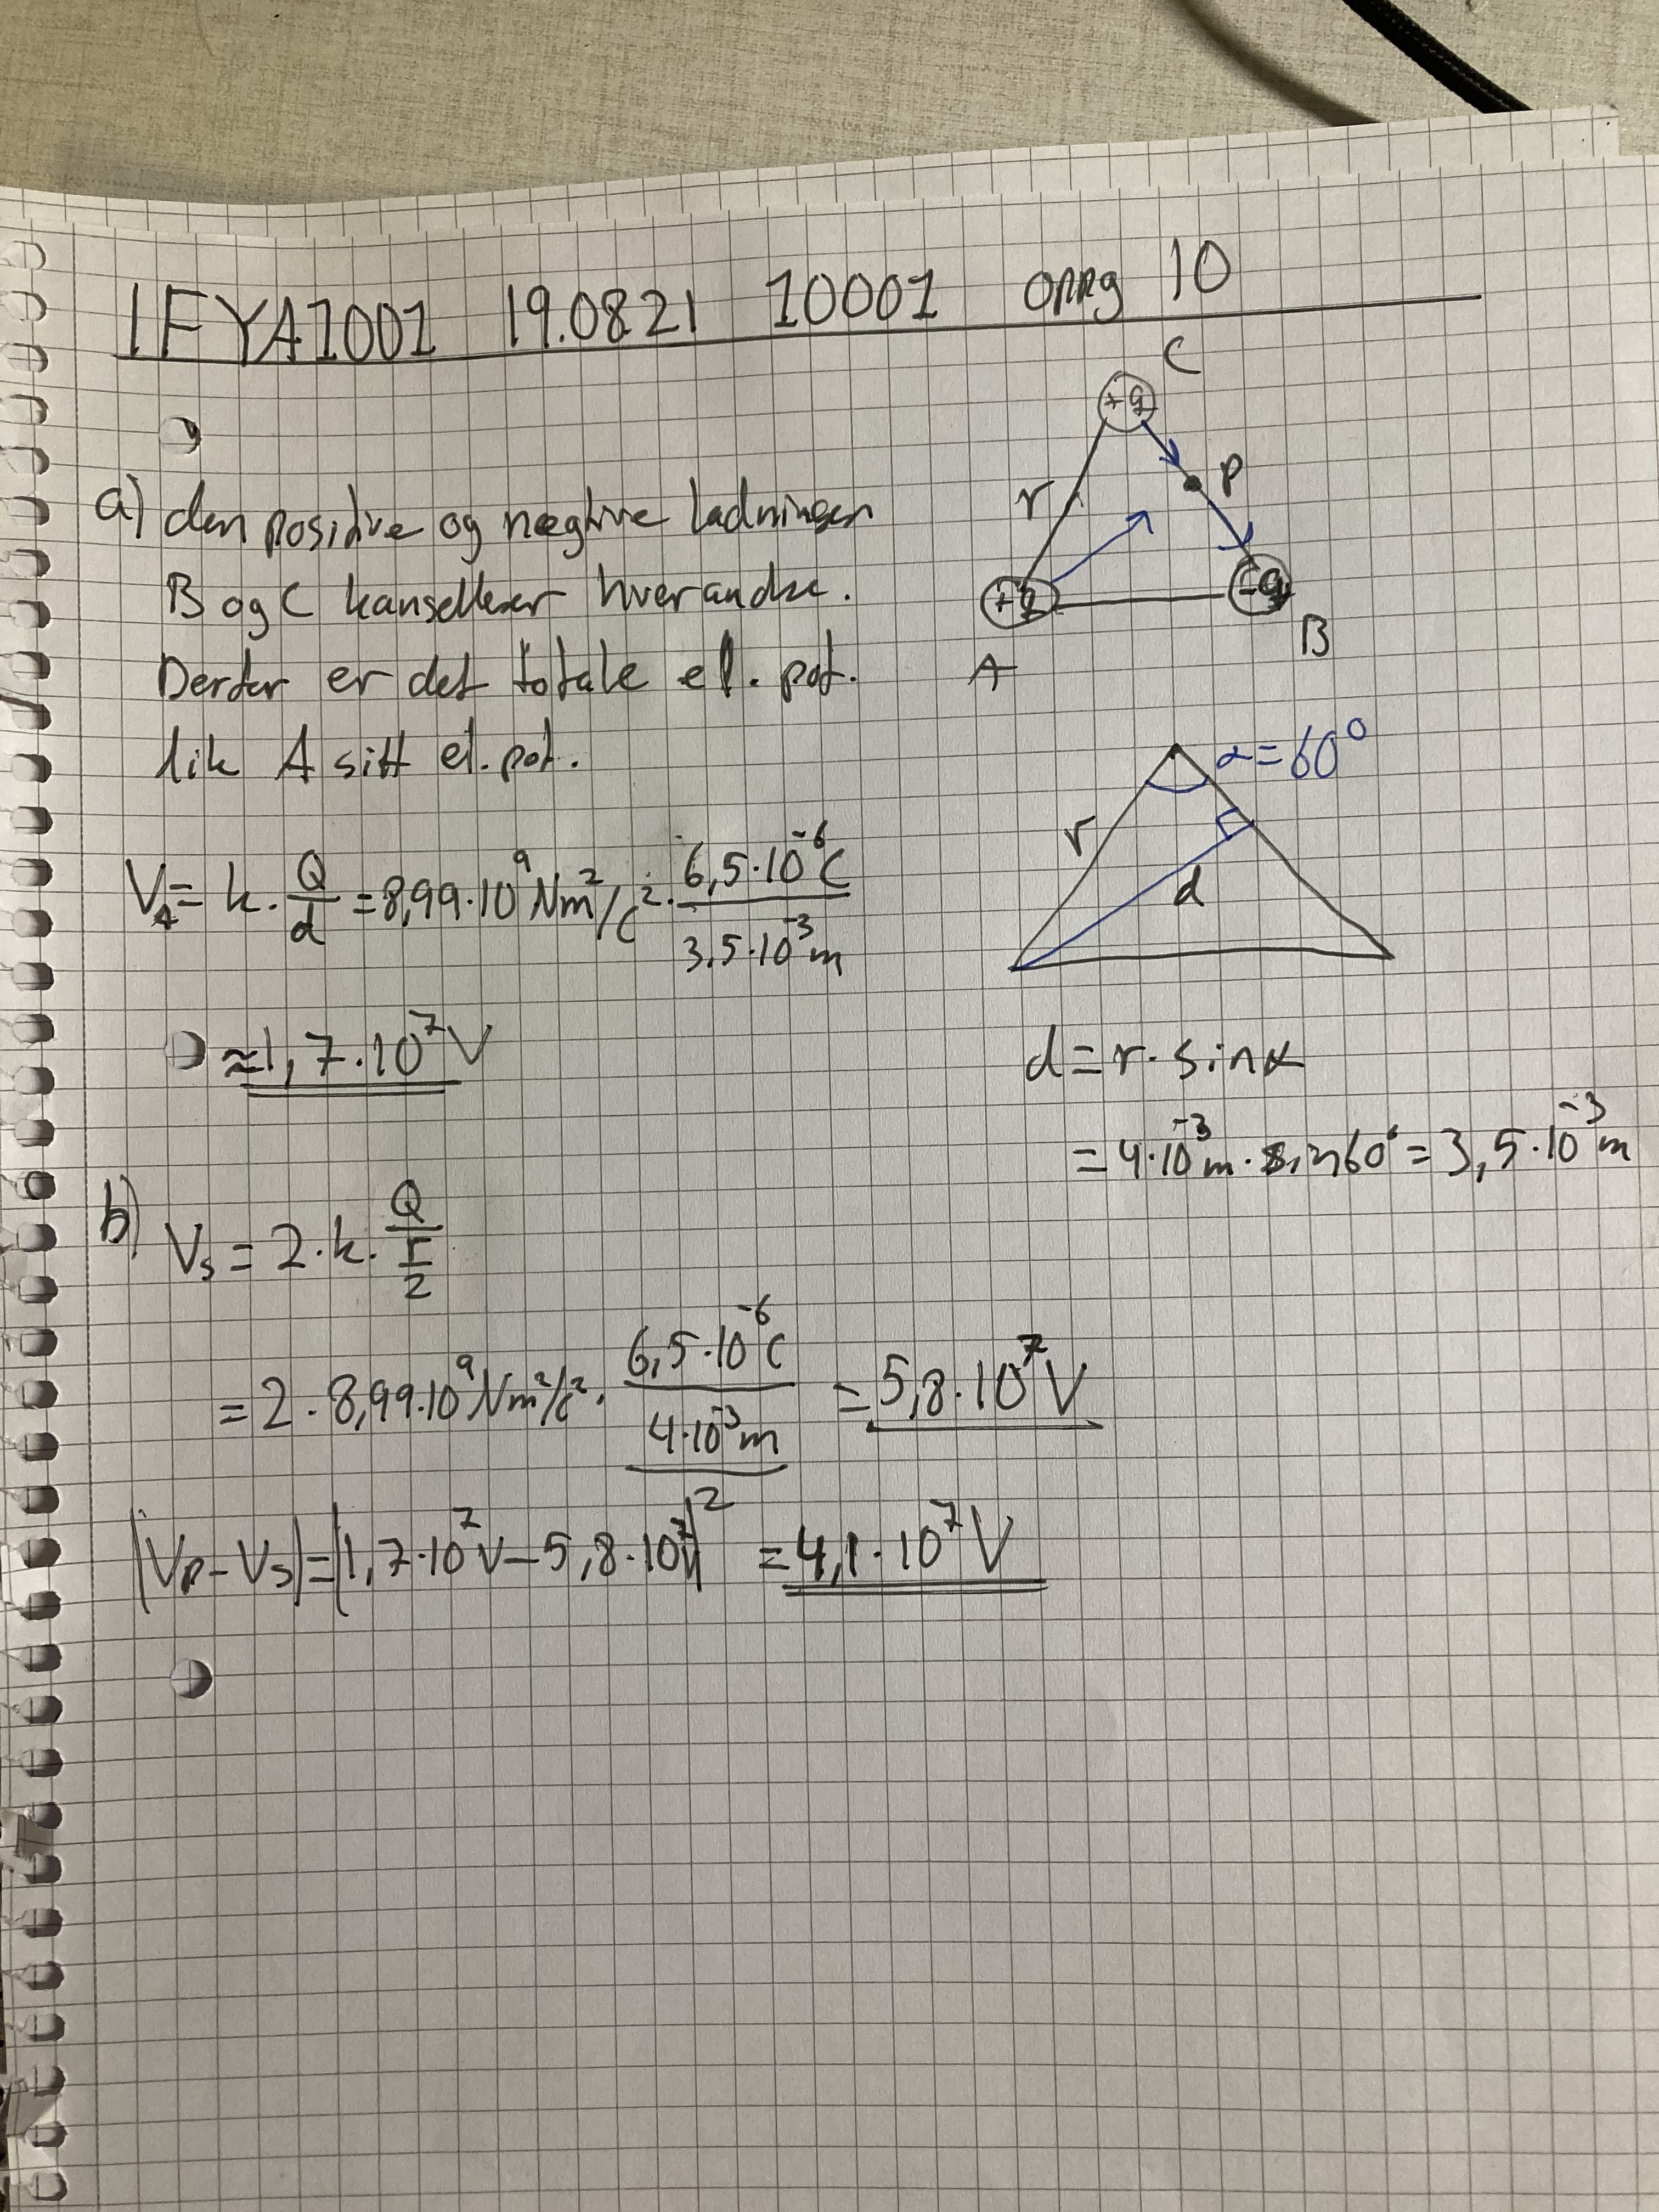 IFYA1001 19.0821 10001 oppg 10
C
+q
P
r
+q
-q
A
B
a) den positive og negtive ladningen
B og C kansellerer hverandre.
Derfor er det totale el. pot.
lik A sitt el. pot.
α=60°
r
d
V_A = k · Q/d = 8,99·10^9 Nm²/C² · 6,5·10^-6 C / 3,5·10^-3 m
≈1,7·10^7 V
d = r · sinα
= 4·10^-3 m · sin60° = 3,5·10^-3 m
b) V_S = 2·k· Q/(r/2)
= 2 · 8,99·10^9 Nm²/C² · 6,5·10^-6 C / 4·10^-3 m = 5,8·10^7 V
|V_P - V_S| = |1,7·10^7 V - 5,8·10^7 V|² = 4,1·10^7 V